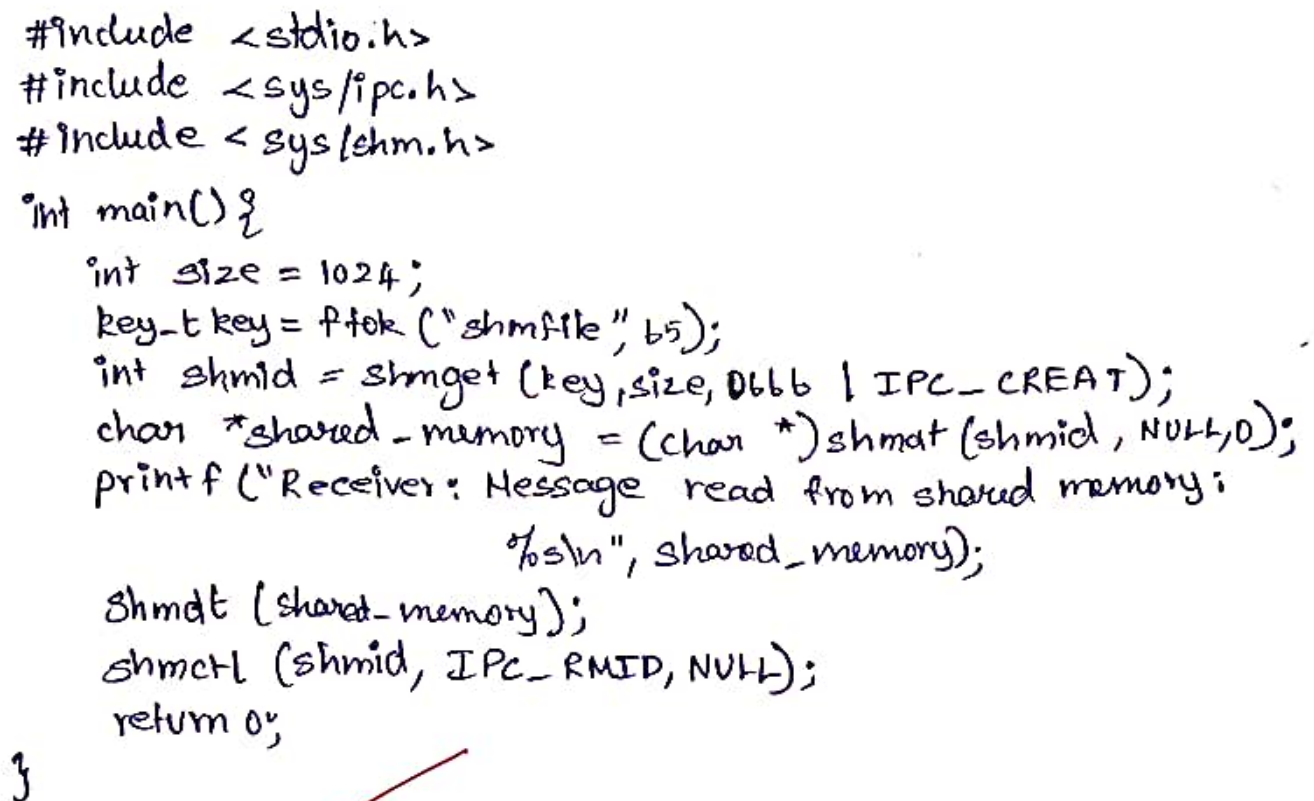 #include <stdio.h>
#include <sys/ipc.h>
#include <sys/shm.h>
int main() {
int size = 1024;
key_t key = ftok ("shmfile", 65);
int shmid = shmget (key, size, 0666 | IPC_CREAT);
char *shared_memory = (char *) shmat (shmid, NULL, 0);
printf ("Receiver: Message read from shared memory:
%s\n", shared_memory);
shmdt (shared_memory);
shmctl (shmid, IPC_RMID, NULL);
return 0;
}